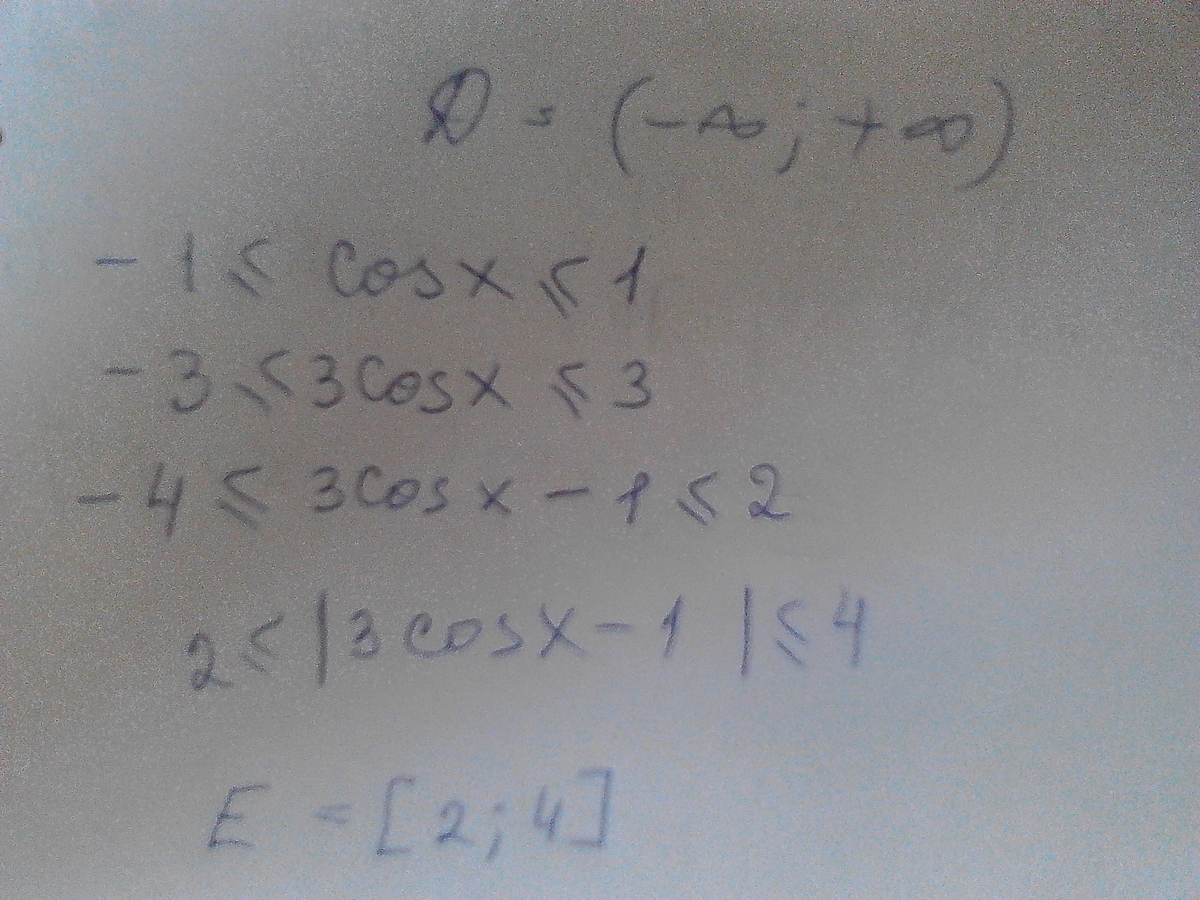 D = (-∞; +∞)
-1 ⩽ cosx ⩽ 1
-3 ⩽ 3cosx ⩽ 3
-4 ⩽ 3cosx - 1 ⩽ 2
2 ⩽ |3cosx - 1| ⩽ 4
E = [2; 4]